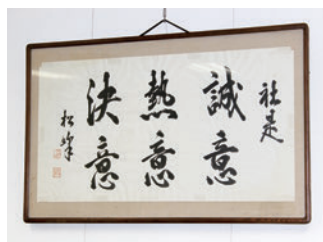 社是
誠意
熱意
決意
松峰